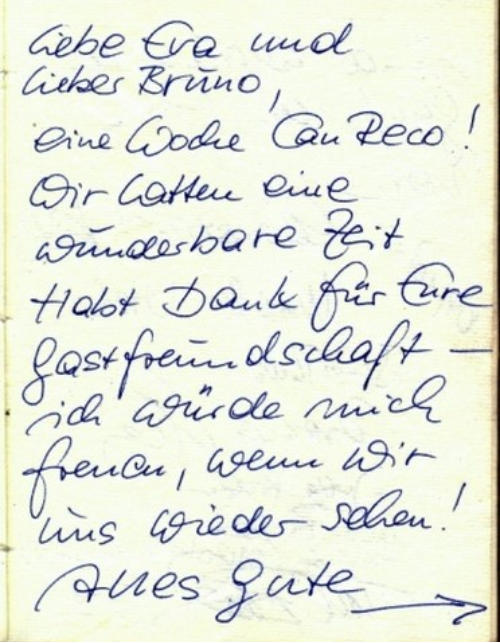 Liebe Eva und
lieber Bruno,
eine Woche Can Reco!
Wir hatten eine
wunderbare Zeit
Habt Dank für Eure
Gastfreundschaft –
ich würde mich
freuen, wenn wir
uns wieder sehen!
Alles Gute →